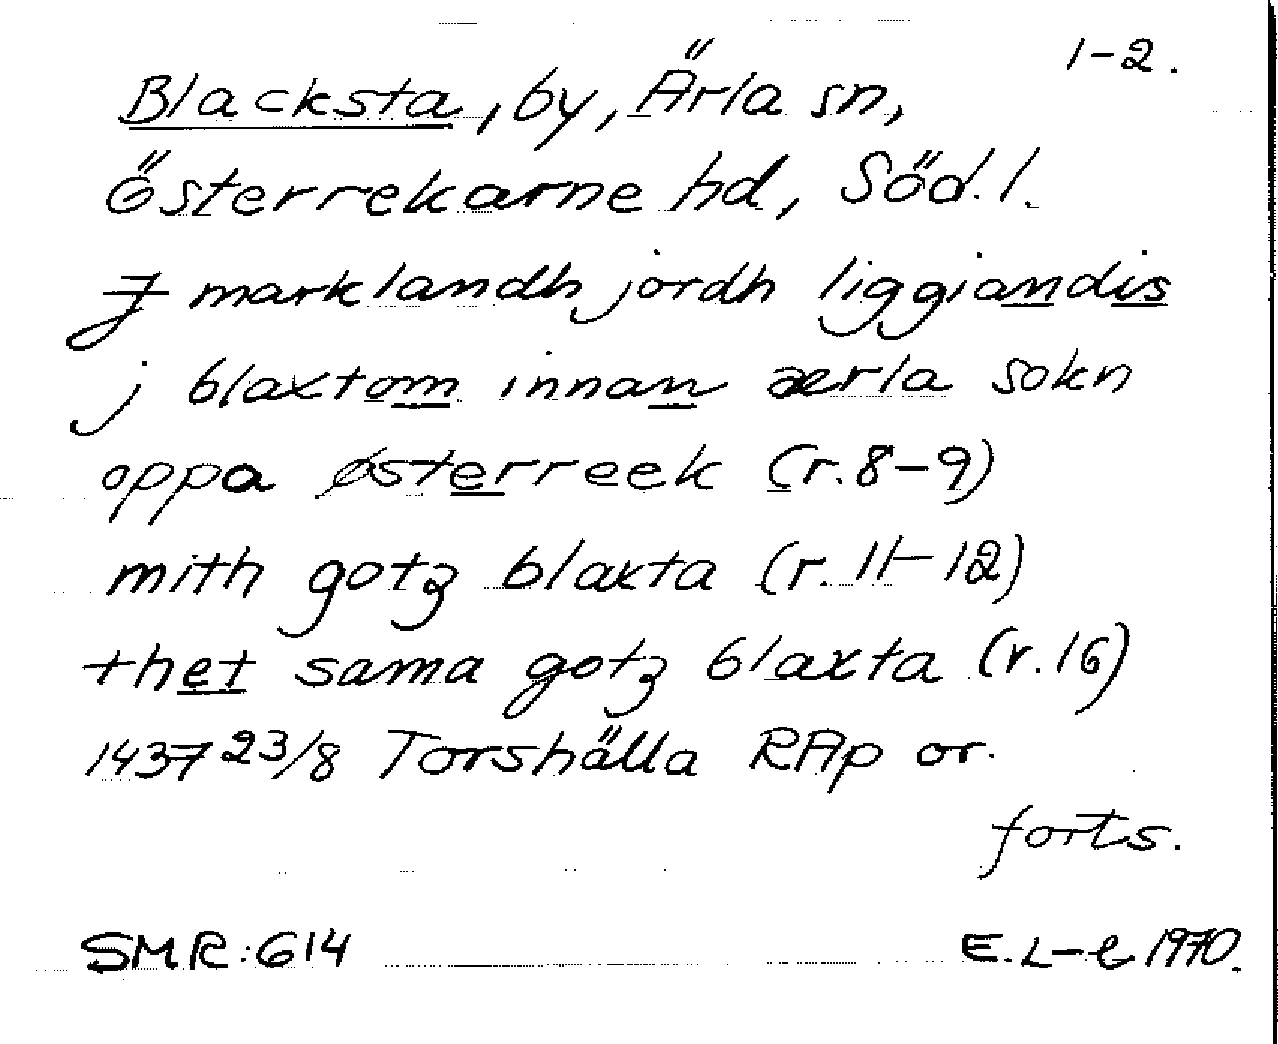 1-2.
Blacksta, by, Ärla sn,
Österrekarne hd, Söd.l.
J marklandh jordh liggiandis
j blaxtom innan ærla sokn
oppa østerreek (r.8-9)
mith gotz blaxta (r.11-12)
thet sama gotz blaxta (r.16)
1437 23/8 Torshälla RAp or.
forts.
SMR:614 E.L-e 1970.